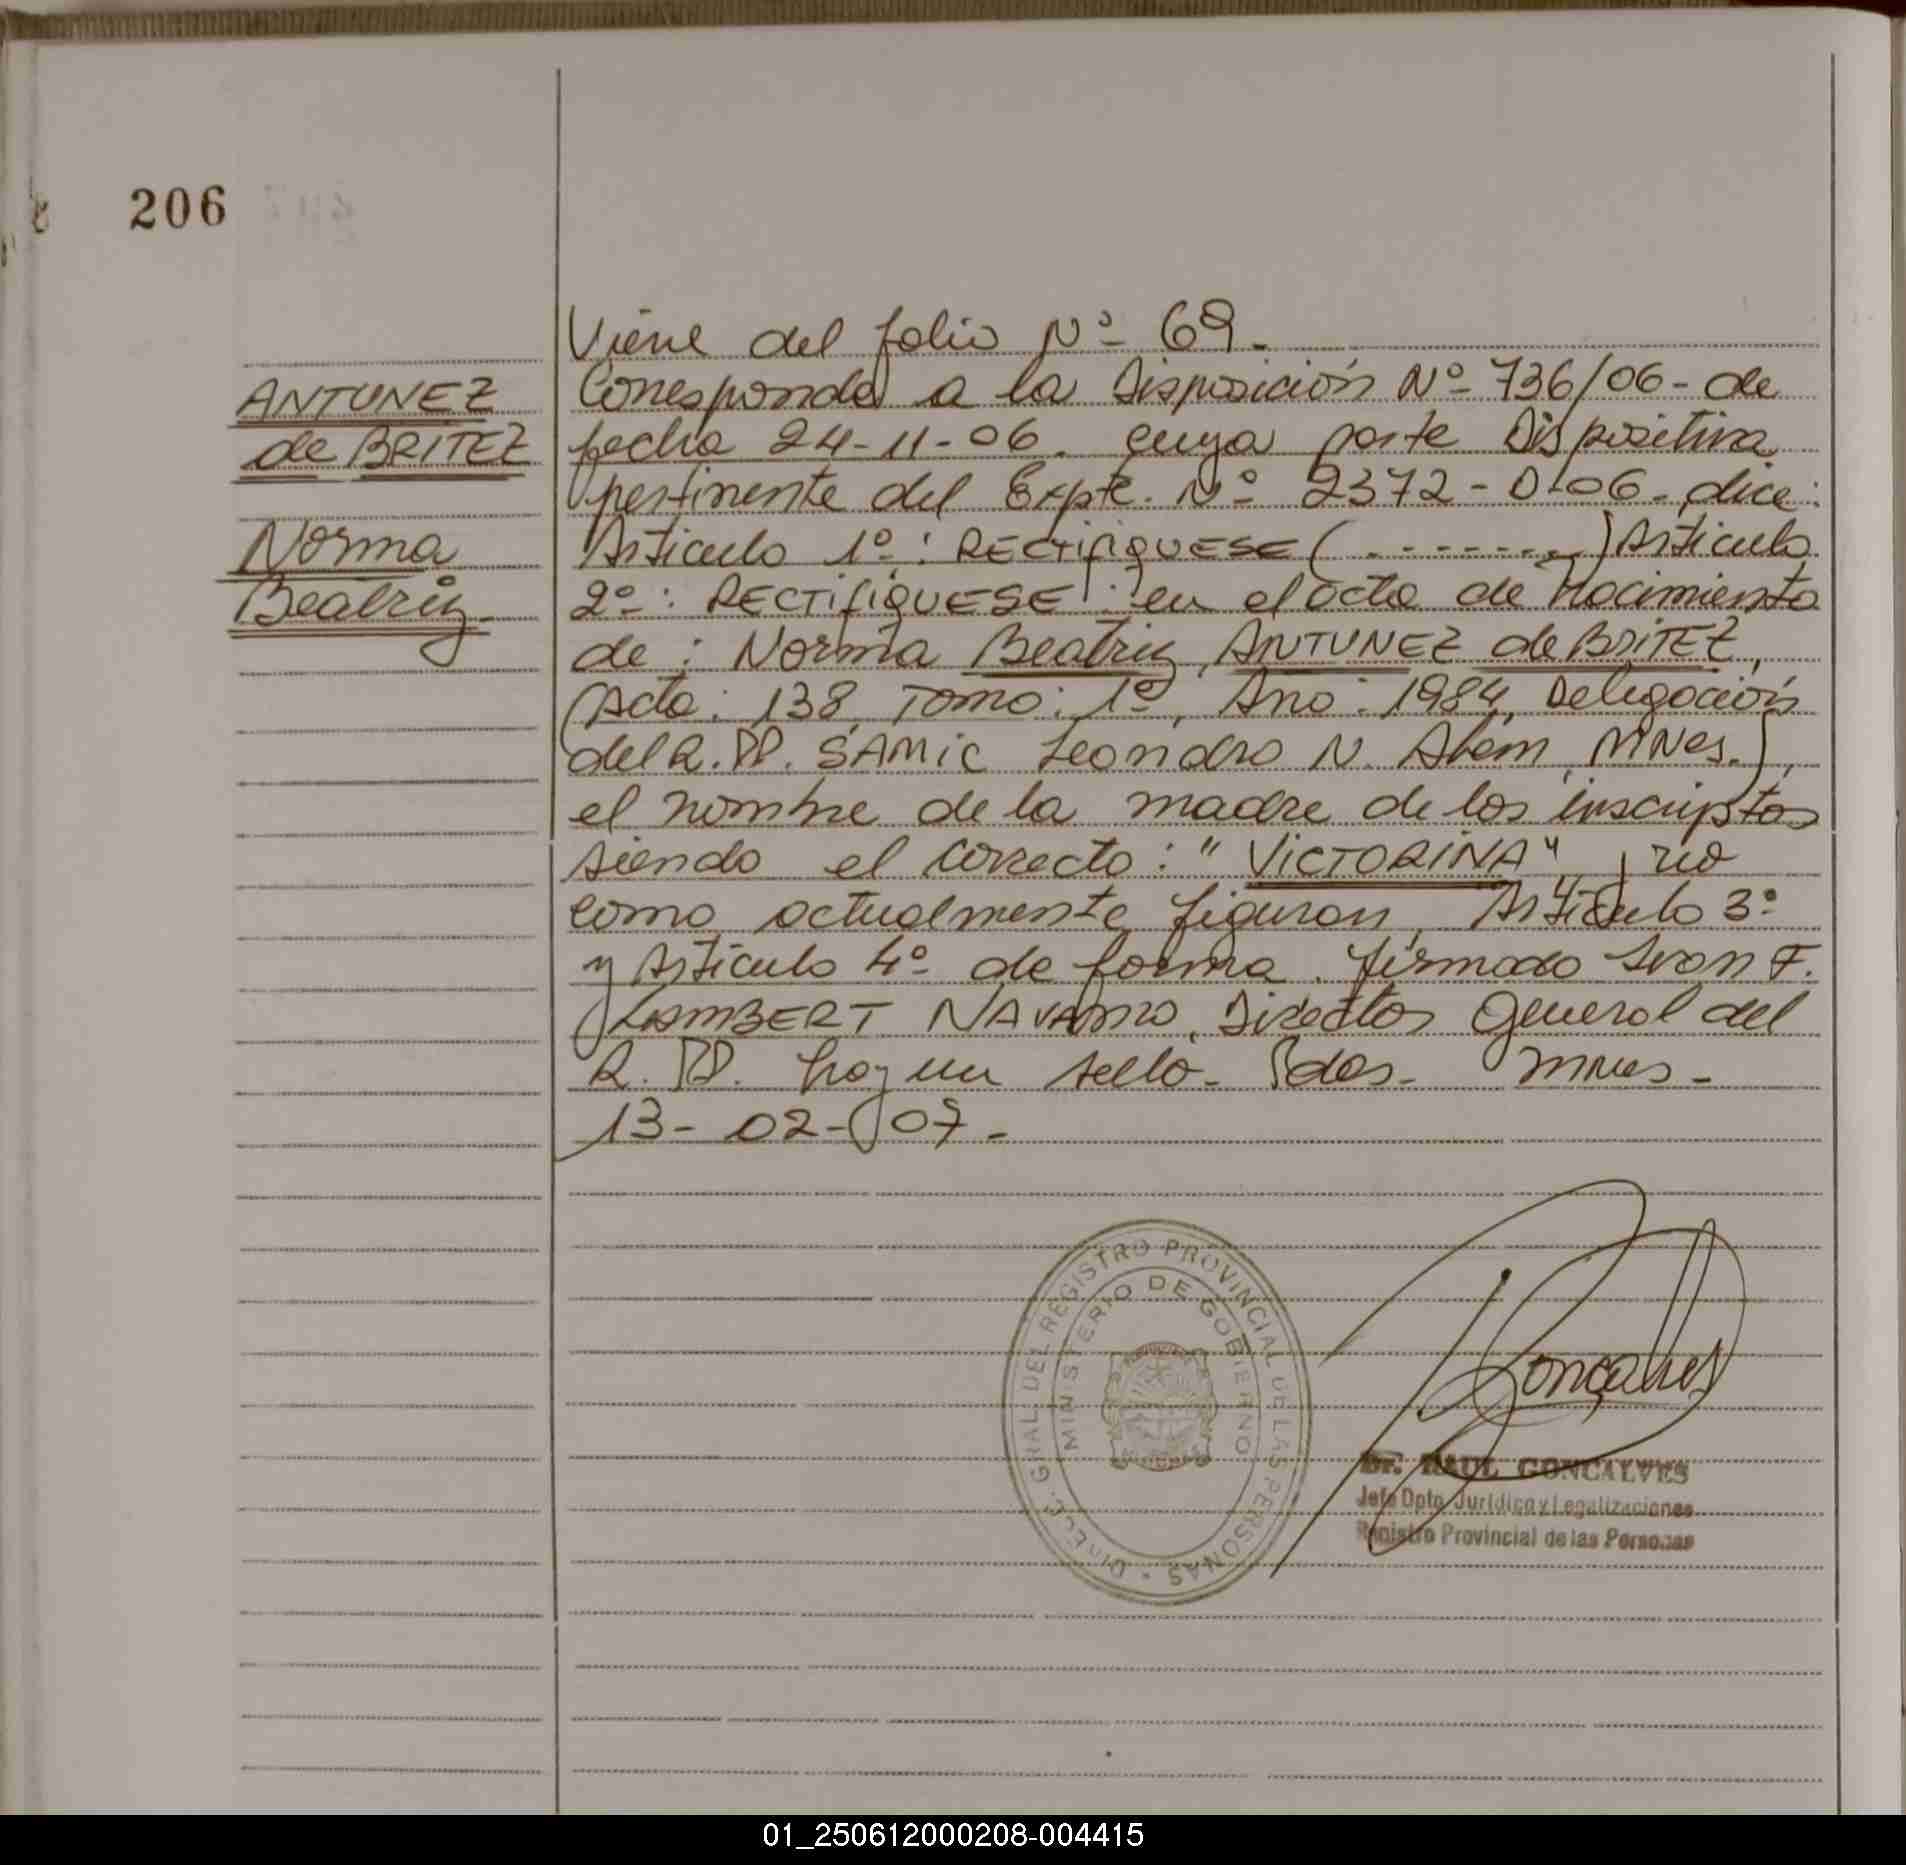 206
Viene del folio Nº 69.
ANTUNEZ
de BRITEZ
Norma
Beatriz
Corresponde a la Disposición Nº 736/06 - de
fecha 24-11-06. cuya parte Dispositiva
pertinente del Expte. Nº 2372-D-06. dice:
Articulo 1º: RECTIFIQUESE (.......) Articulo
2º: RECTIFIQUESE: en el acta de Nacimiento
de: Norma Beatriz ANTUNEZ de BRITEZ,
(Acta: 138, Tomo: 1º, Año: 1984, Delegación
del R.PP. SAMIC Leandro N. Alem, MNes.),
el nombre de la madre de los inscriptos
siendo el correcto: "VICTORINA", no
como actualmente figuran, Articulo 3º
y Articulo 4º de forma. firmado Ivan F.
LAMBERT NAVARRO, Director General del
R.PP. hay un sello - Pdas. - Mnes -
13-02-07.-
DIREC. GRAL. DEL REGISTRO PROVINCIAL DE LAS PERSONAS
MINISTERIO DE GOBIERNO
Gonçalves
Dr. RAUL GONCALVES
Jefe Dpto. Jurídico y Legalizaciones
Registro Provincial de las Personas
01_250612000208-004415